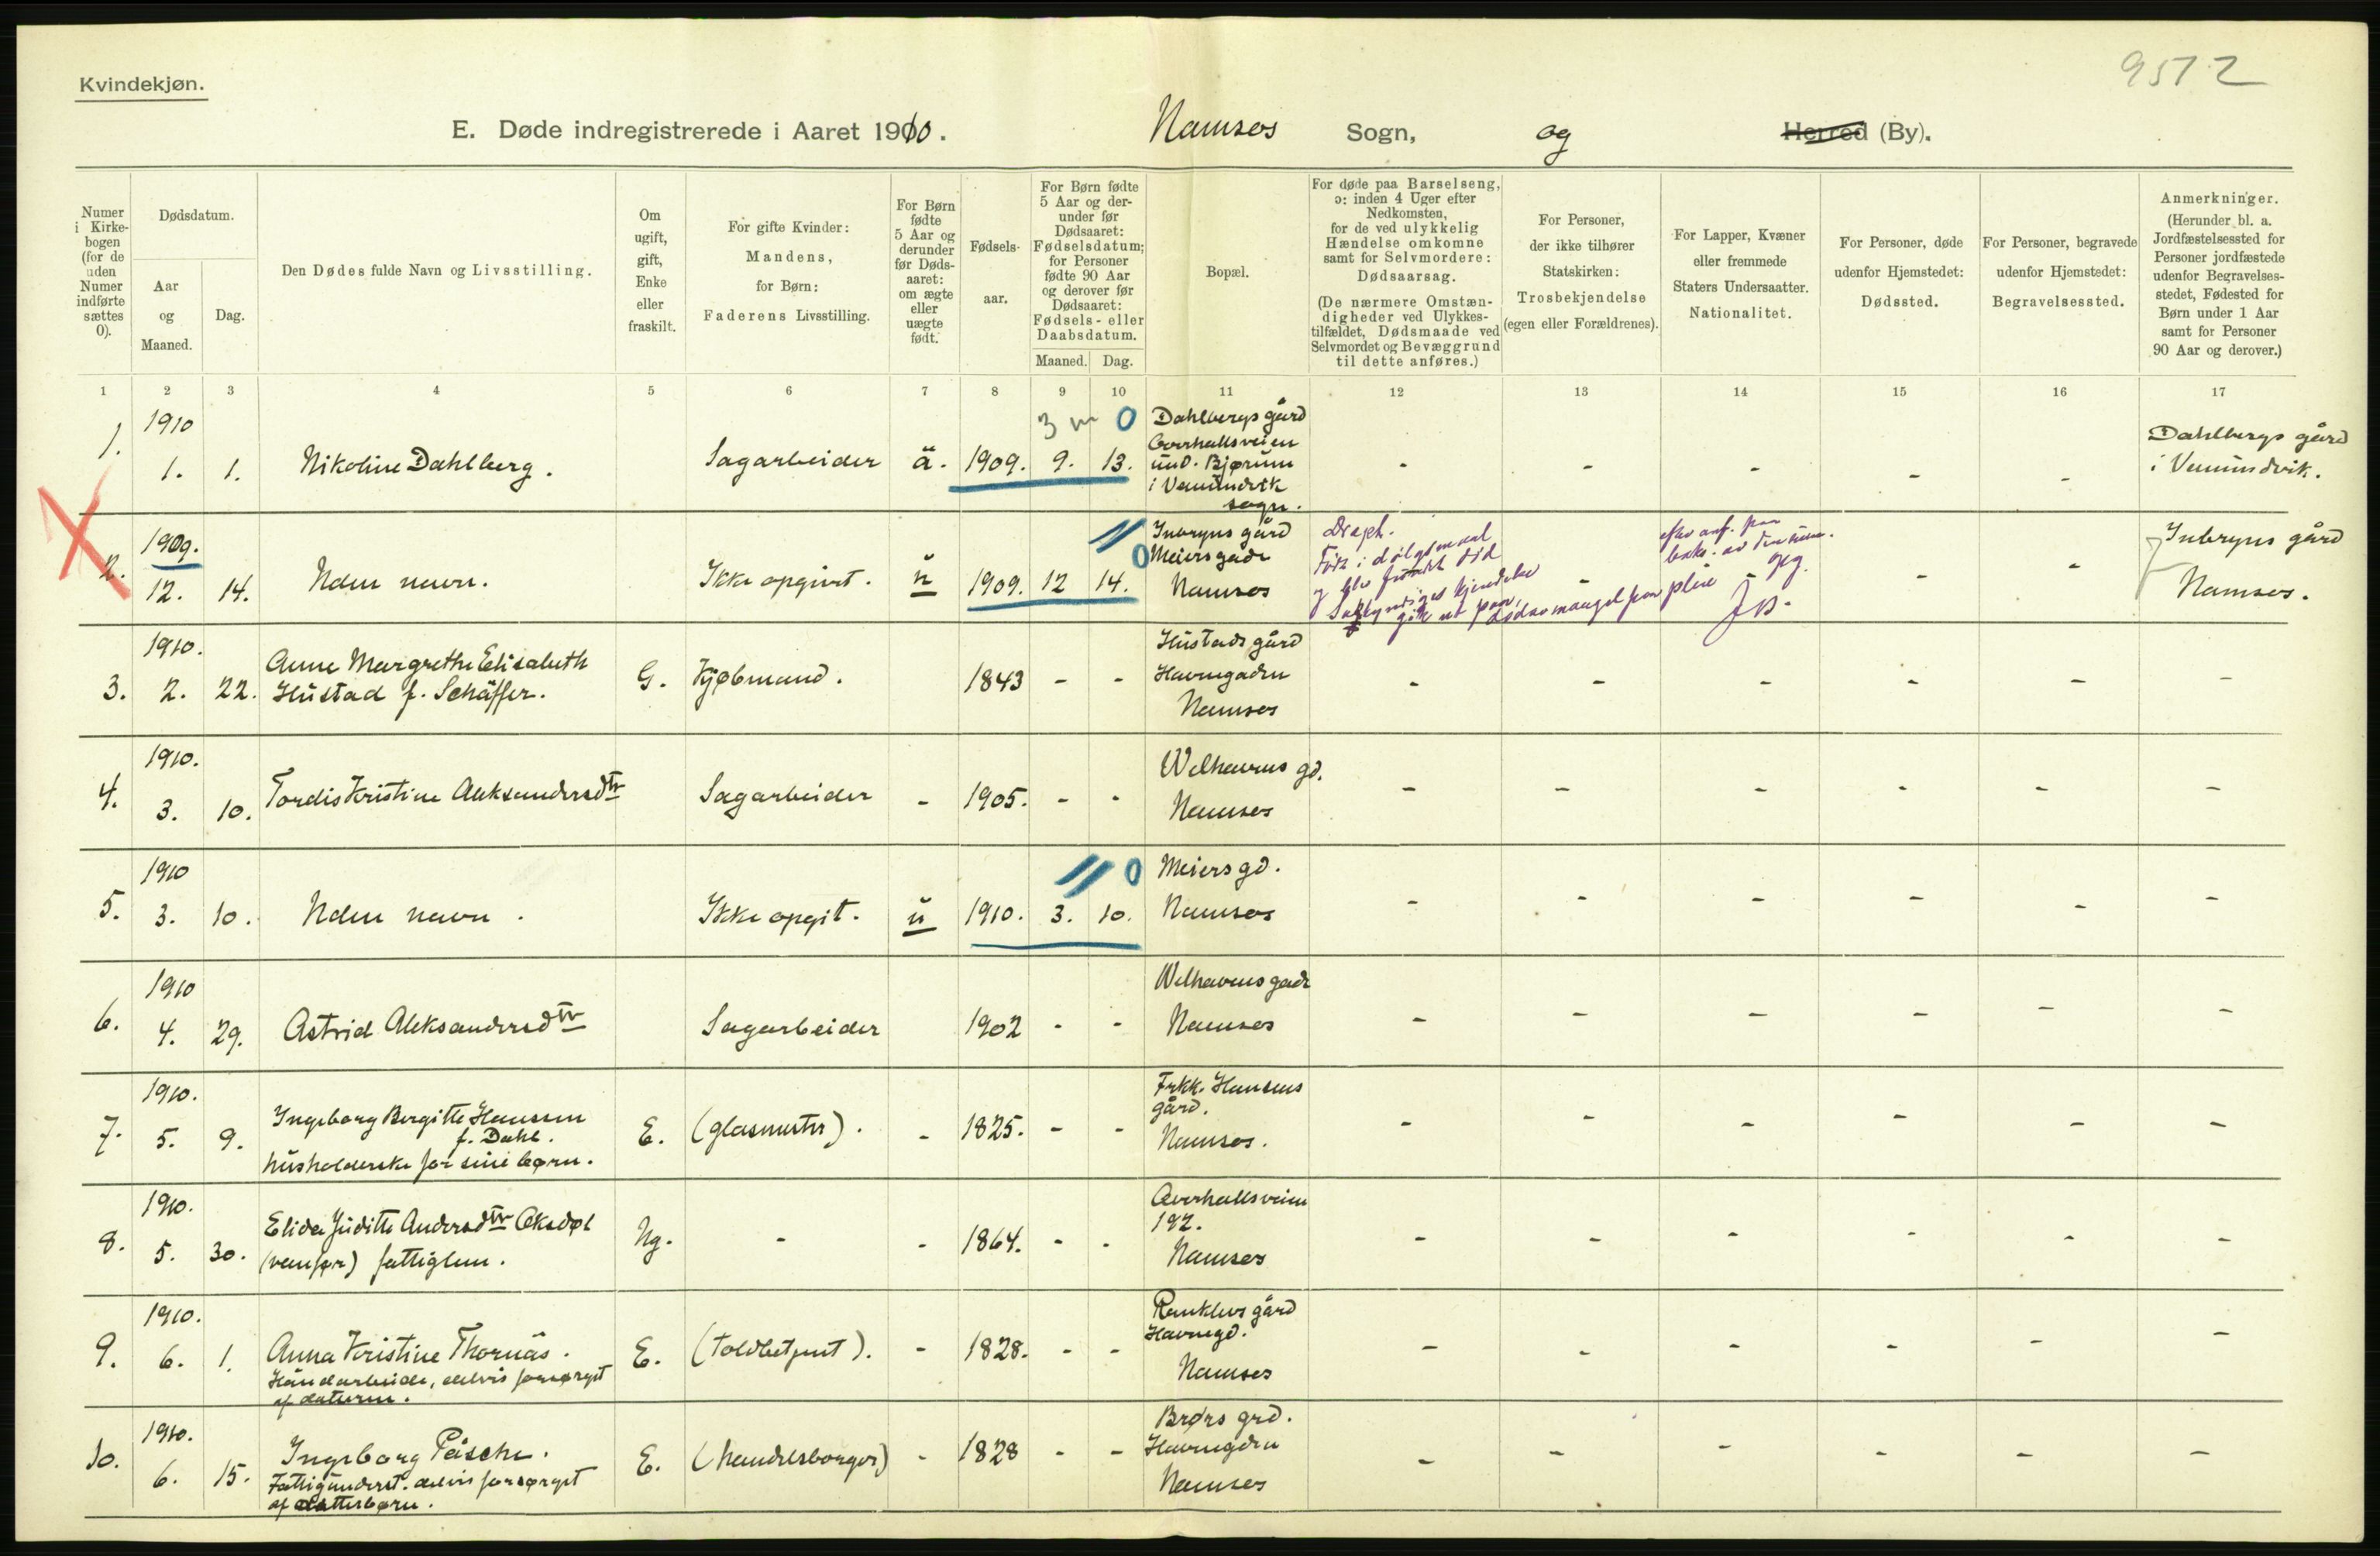 Kvindekjøn.
9572
E. Døde indregistrerede i Aaret 1910. Namsos Sogn, og Herred (By).
Numer i Kirkebogen (for de uden Numer indførte sættes 0).
Dødsdatum.
Aar og Maaned.
Dag.
Den Dødes fulde Navn og Livsstilling.
Om ugift, gift, Enke eller fraskilt.
For gifte Kvinder: Mandens, for Børn: Faderens Livsstilling.
For Børn fødte 5 Aar og derunder før Dødsaaret: om ægte eller uægte født.
Fødselsaar.
For Børn fødte 5 Aar og derunder før Dødsaaret: Fødselsdatum; for Personer fødte 90 Aar og derover før Dødsaaret: Fødsels- eller Daabsdatum.
Maaned. Dag.
Bopæl.
For døde paa Barselseng, ɔ: inden 4 Uger efter Nedkomsten, for de ved ulykkelig Hændelse omkomne samt for Selvmordere: Dødsaarsag.
(De nærmere Omstændigheder ved Ulykkestilfældet, Dødsmaade ved Selvmordet og Bevæggrund til dette anføres.)
For Personer, der ikke tilhører Statskirken: Trosbekjendelse (egen eller Forældrenes).
For Lapper, Kvæner eller fremmede Staters Undersaatter. Nationalitet.
For Personer, døde udenfor Hjemstedet: Dødssted.
For Personer, begravede udenfor Hjemstedet: Begravelsessted.
Anmerkninger.
(Herunder bl. a. Jordfæstelsessted for Personer jordfæstede udenfor Begravelsesstedet, Fødested for Børn under 1 Aar samt for Personer 90 Aar og derover.)
1 2 3 4 5 6 7 8 9 10 11 12 13 14 15 16 17
3 m 0
1. 1910 1. 1. Nikoline Dahlberg. Sagarbeider ä. 1909. 9. 13. Dahlbergs gård Overhallsveien und. Bjørum i Vemundvik sogn. - - - - - Dahlbergs gård i Vemundvik.
X
0
2. 1909. 12. 14. Uden navn. Ikke opgivet. ü 1909. 12 14. Meiersgade Namsos
Født i dølgsmaal
og blev fundet død
- - - - gård Namsos.
3. 1910. 2. 22. Anne Margrethe Elisabeth Hustad f. Schäffer. G. Kjøbmand. 1843 - - Hustads gård Havnegaden Namsos - - - - - -
4. 1910. 3. 10. Tordis Kristine Aleksandersdtr Sagarbeider - 1905. - - Welhavens gd. Namsos - - - - - -
0
5. 1910 3. 10. Uden navn. Ikke opgit. ü 1910. 3. 10. Meiers gd. Namsos - - - - - -
6. 1910 4. 29. Astrid Aleksandersdtr Sagarbeider 1902 - - Welhavens gade Namsos - - - - - -
7. 1910. 5. 9. Ingeborg Bergitte Hanssen f. Dahl. husholderske for sine børn. E. (glasmester). - 1825. - - Frkk. Hansens gård. Namsos. - - - - - -
8. 1910. 5. 30. Elida Juditte Andersdtr (vanfør) fattiglem. Ug. - - 1864. - - Overhallsveien 192. Namsos - - - - - -
9. 1910. 6. 1. Anna Kristine Thornäs. Håndarbeide, delvis forsørget af datteren. E. (toldbetjent). - 1828. - - gård Havnegd. Namsos - - - - - -
10. 1910. 6. 15. Ingeborg Påsche. Fattigunderst. delvis forsørget af datterbørn. E. (handelsborger) - 1828 - - Brørs grd. Havnegden Namsos - - - - - -